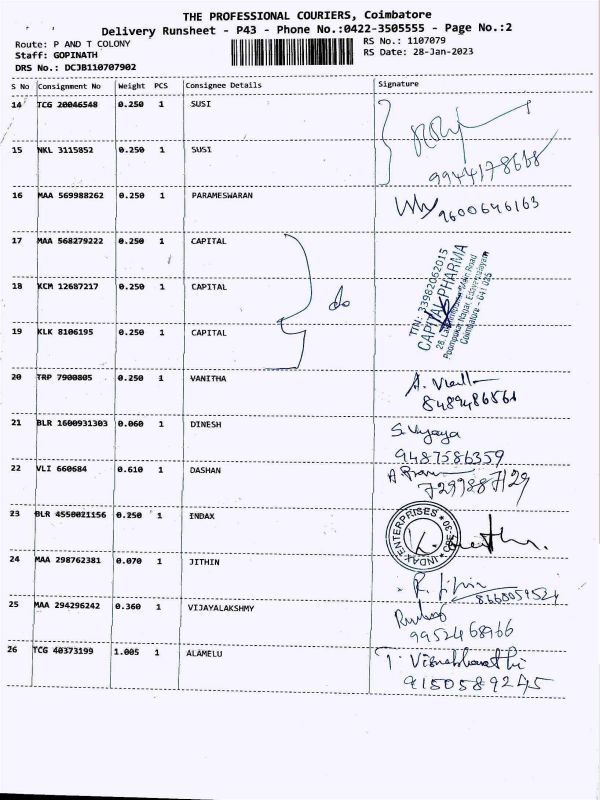 THE PROFESSIONAL COURIERS, Coimbatore
Delivery Runsheet - P43 - Phone No.:0422-3505555 - Page No.:2
Route: P AND T COLONY
Staff: GOPINATH
DRS No.: DCJB110707902
RS No.: 1107079
RS Date: 28-Jan-2023
S No Consignment No Weight PCS Consignee Details Signature
14 TCG 20046548 0.250 1 SUSI
15 NKL 3115852 0.250 1 SUSI
9944178668
16 MAA 569988262 0.250 1 PARAMESWARAN
9600646163
17 MAA 568279222 0.250 1 CAPITAL
18 KCM 12687217 0.250 1 CAPITAL do
19 KLK 8106195 0.250 1 CAPITAL
TIN: 33982062015
CAPITAL PHARMA
Coimbatore - 641 025
20 TRP 7900805 0.250 1 VANITHA
8489486561
21 BLR 1600931303 0.060 1 DINESH S. Vijaya
9487586359
22 VLI 660684 0.610 1 DASHAN
7299887129
23 BLR 4550021156 0.250 1 INDAX
INDAX ENTERPRISES * CBE-30 *
24 MAA 298762381 0.070 1 JITHIN
R. Jithin
8668059524
25 MAA 294296242 0.360 1 VIJAYALAKSHMY
9952468966
26 TCG 40373199 1.005 1 ALAMELU
T. Visnubharathi
9150589245